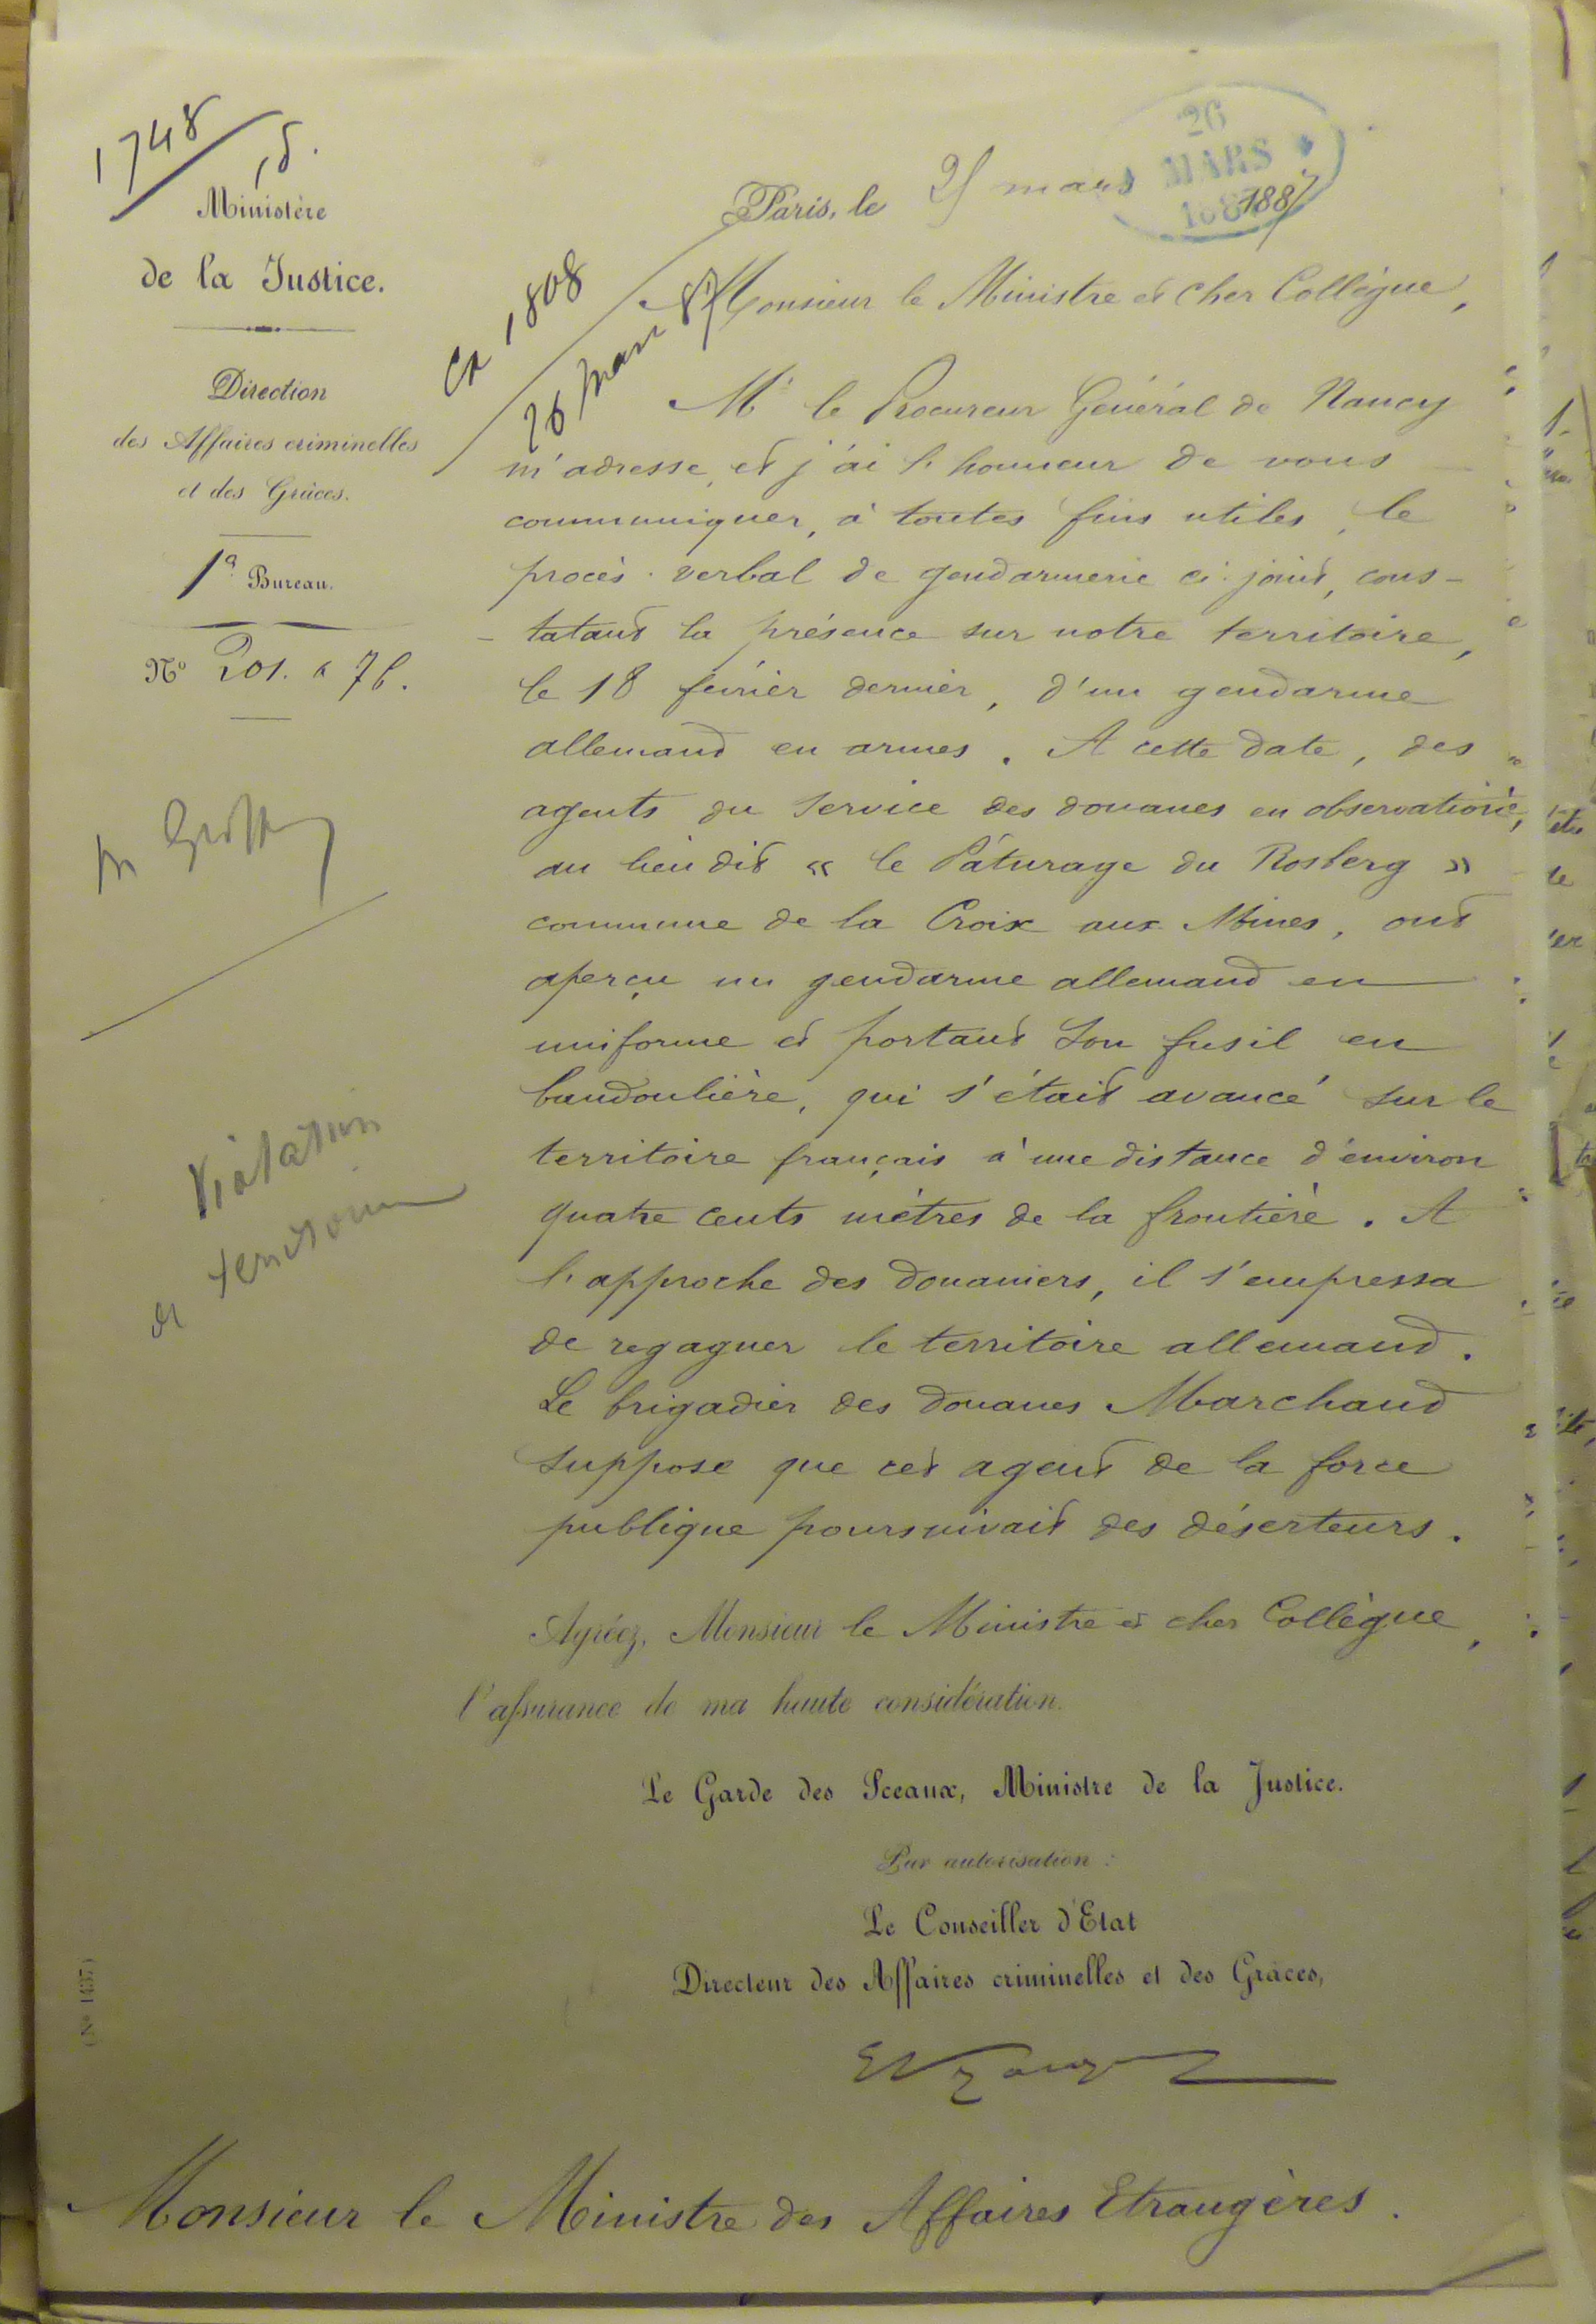 1748
Ministère
de la Justice.
Direction
des Affaires criminelles
et des Grâces.
1er Bureau.
No 201. a 76.
Violation
de territoire
(No 1437)
26
MARS
Paris, le 25 mars 1887
808
26 Mars 87
Monsieur le Ministre et Cher Collègue,
Mr le Procureur Général de Nancy
m'adresse, et j'ai l'honneur de vous
communiquer, à toutes fins utiles, le
procès-verbal de gendarmerie ci-joint, cons-
-tatant la présence sur notre territoire,
le 18 février dernier, d'un gendarme
allemand en armes. A cette date, des
agents du Service des douanes en observation,
au lieu dit « le Pâturage du Rosberg »
commune de la Croix aux Mines, ont
aperçu un gendarme allemand en
uniforme et portant son fusil en
bandoulière, qui s'était avancé sur le
territoire français à une distance d'environ
quatre cents mètres de la frontière. A
l'approche des douaniers, il s'empressa
de regagner le territoire allemand.
Le brigadier des douanes Marchand
suppose que cet agent de la force
publique poursuivait des déserteurs.
Agréez, Monsieur le Ministre et cher Collègue,
l'assurance de ma haute considération.
Le Garde des Sceaux, Ministre de la Justice.
Par autorisation :
Le Conseiller d'Etat
Directeur des Affaires criminelles et des Grâces,
Monsieur le Ministre des Affaires Etrangères.